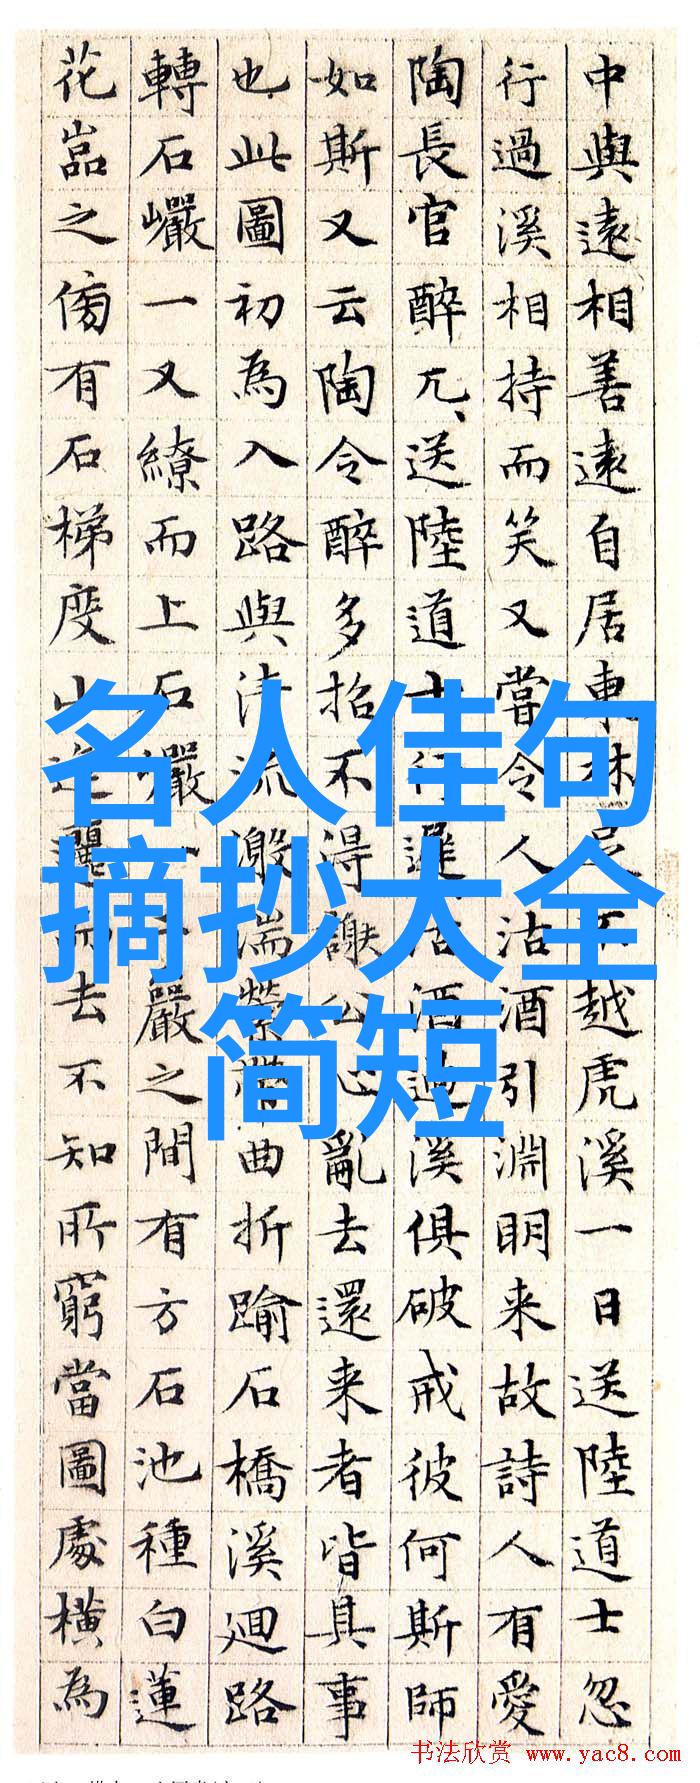 中與遠相善遠自居東林足不越虎溪一日送陸道士忽
行過溪相持而笑又嘗令人沽酒引淵明来故詩人有愛
陶長官醉兀、送陸道士行遲沽酒過溪俱破戒彼何斯師
如斯又云陶令醉多招不得謝公心亂去還来者皆具事
也此圖初為入路與清流激湍縈帶曲折踰石橋溪迴路
轉石巗一又繚而上石巗巖之間有方石池種白蓮
花嵓之傍有石梯度山迤邐而去不知所窮當圖處橫為
名人佳句
摘抄大全
简短
书法欣赏 www.yac8.com